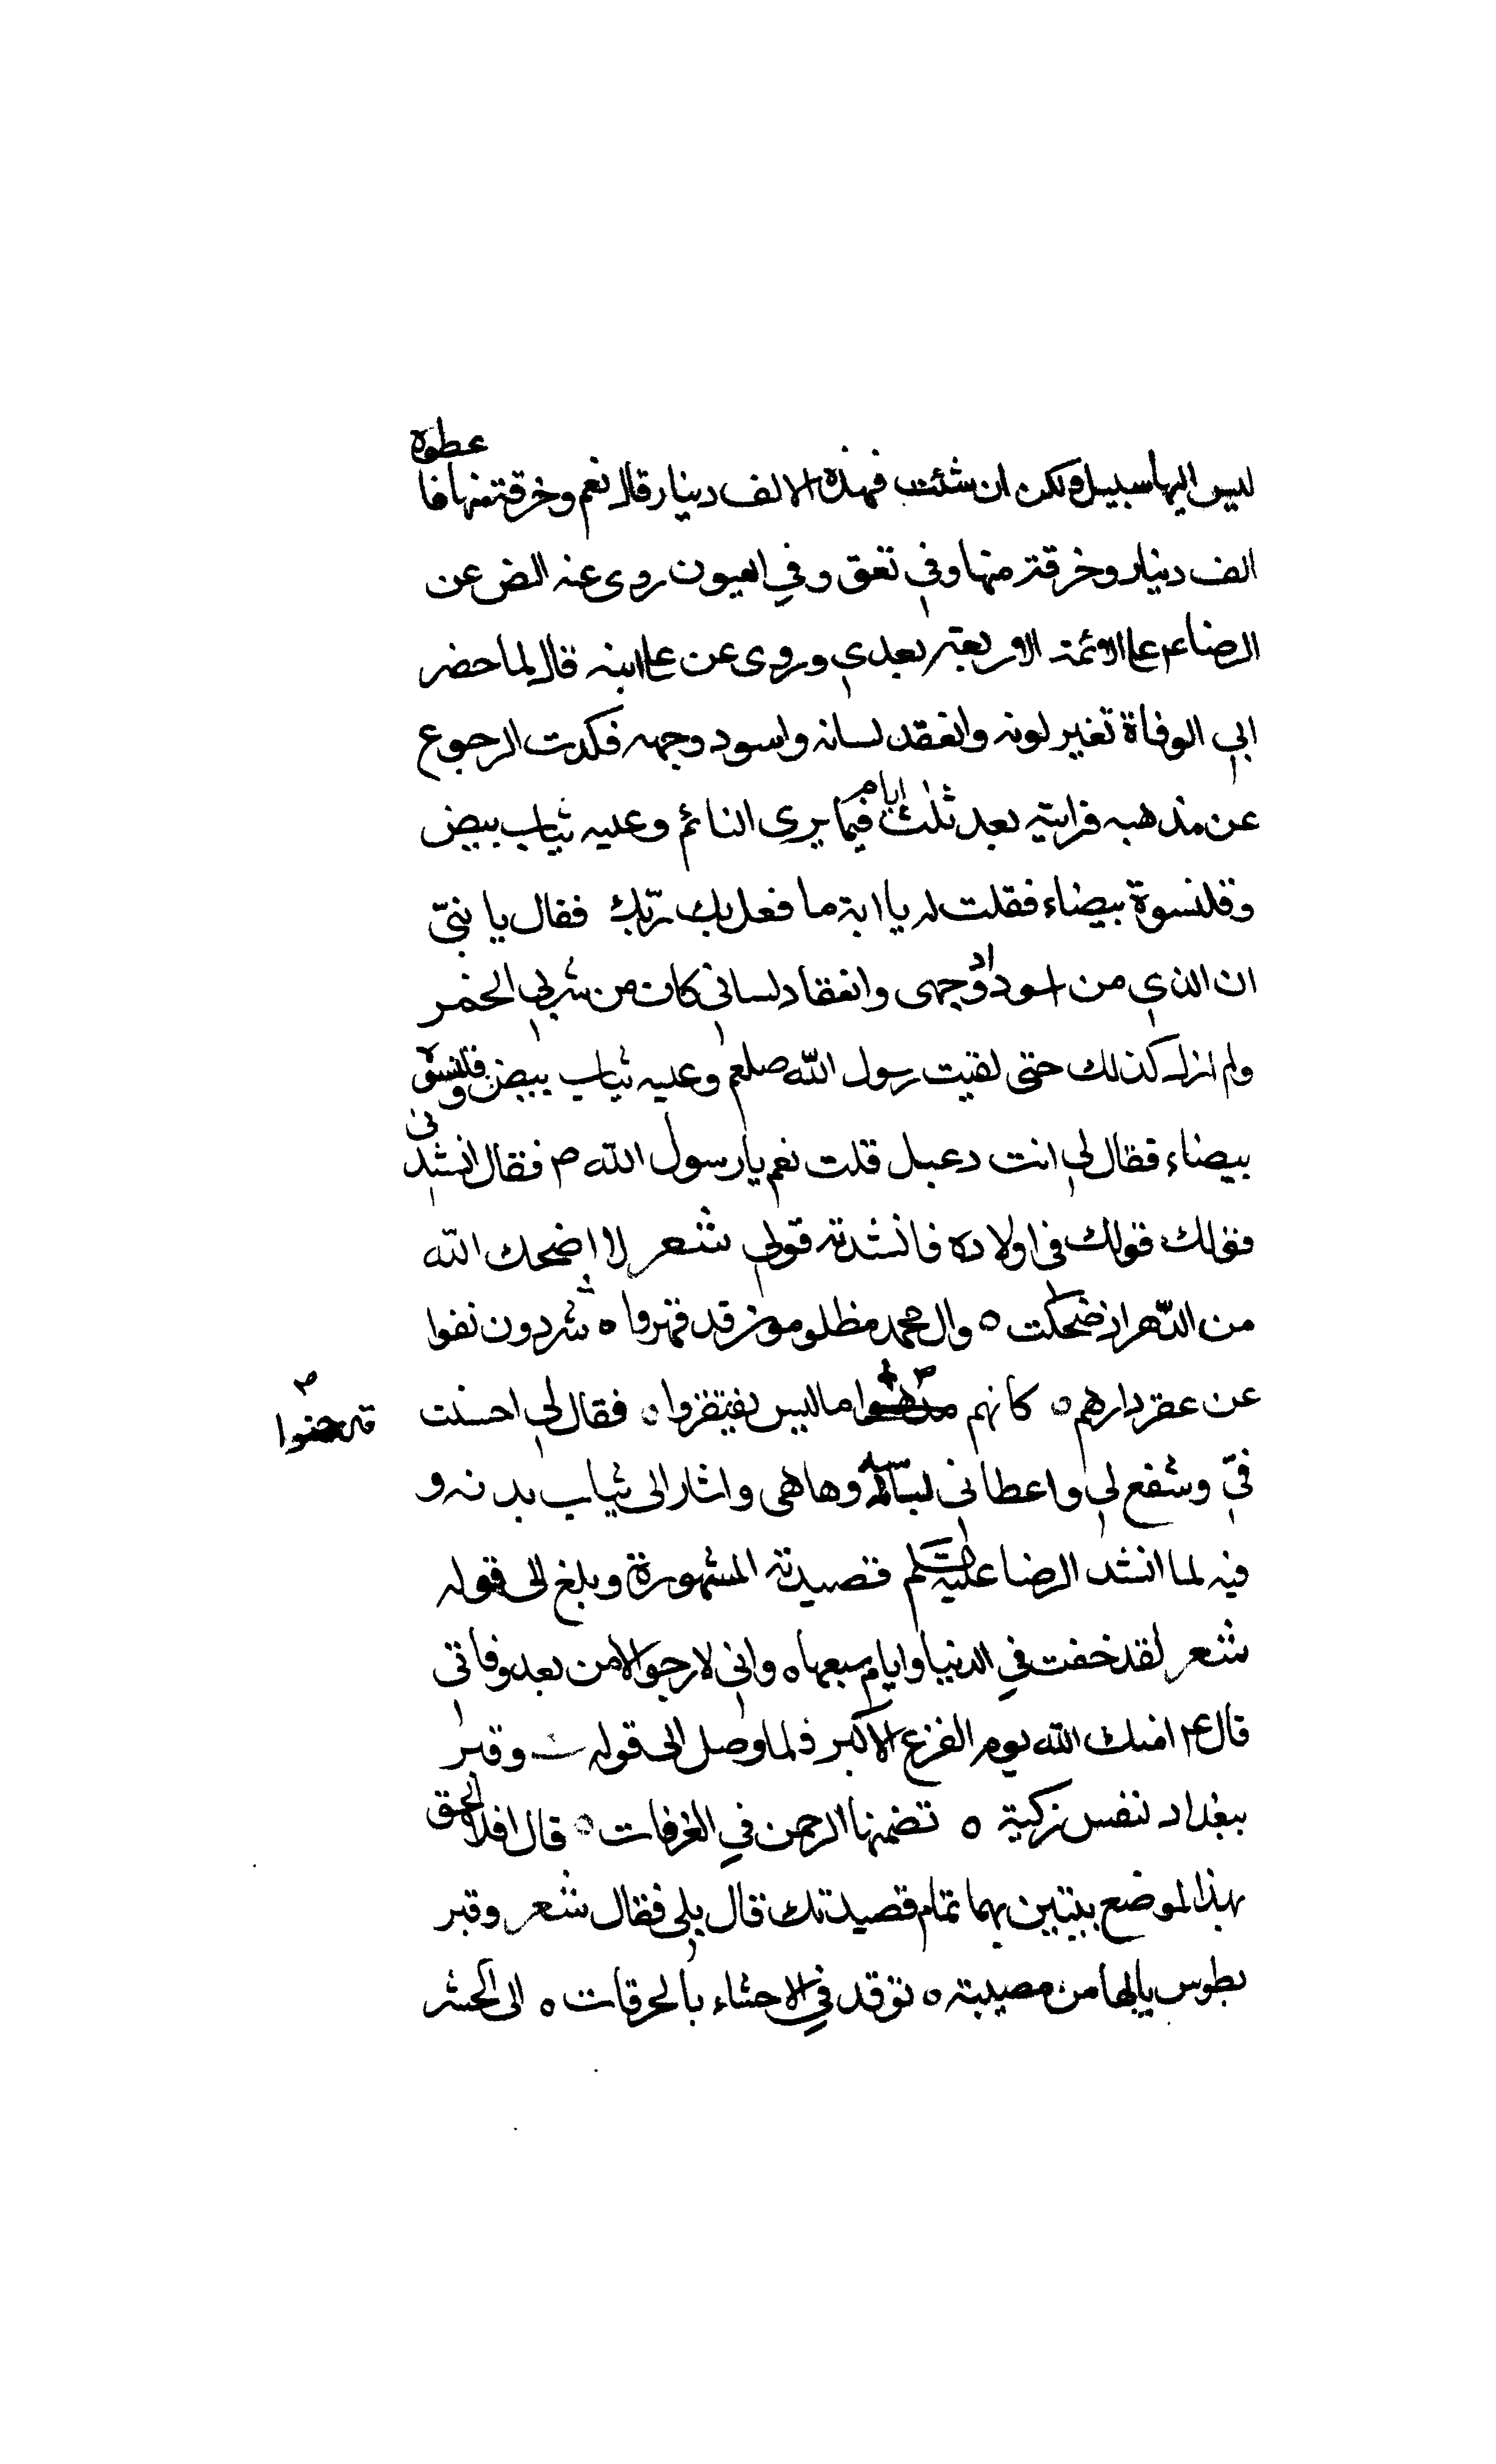 ليس اليها سبيل ولكن ان شئت فهذه الالف دينار قال نعم وخرقة منها فاعطوه
الف دينار وخرقة منها وفي تعق وفي العيون روى عنه النص عن
الرضا ع م على الائمة الاربعة بعدي وروى عن على ابنه قال لما حضر
ابي الوفاة تغير لونه وانعقد لسانه واسود وجهه فكدت الرجوع
عن مذهبه فرايته بعد ثلث ايام فيما يرى النائم وعليه ثياب بيض
وقلنسوة بيضاء فقلت له يا ابة ما فعل بك ربّك فقال يا بنيّ
ان الذي من اسوداد وجهى وانعقاد لساني كان من شربي الخمر
ولم ازل كذلك حتى لقيت رسول الله صلعم وعليه ثياب بيض وقلنسوة
بيضاء فقال لي انت دعبل قلت نعم يا رسول الله ص فقال انشدنى
فولك قولك في اولاده فانشدته قولي شعر لا اضحك الله
من الدّهر ان ضحكت ٥ وال محمد مظلومون قد قهروا ٥ شردون نفوا
عن عقر دارهم ٥ كانهم ما ليس يغتفروا ٥ فقال لي احسنت
قد جنوا
فيّ وشفع لي واعطاني وها هي واشار الى ثياب بدنه و
فيه لما انشد الرضا عليه السلم قصيدته المشهورة وبلغ الى قوله
شعر لقد خفت في الدنيا وايام سعيها ٥ واني لارجو الامن بعد وفاتى
قال ع م امنك الله يوم الفزع الاكبر فلما وصل الى قوله وقبر
ببغداد لنفس زكية ٥ تضمنها الرحمن في الغرفات ٥ قال افلا الحق
بهذا الموضع بيتين بهما تمام قصيدتك قال بلى فقال شعر وقبر
بطوس يا لها من مصيبة ٥ توقد في الاحشاء بالحرقات ٥ الى الحشر